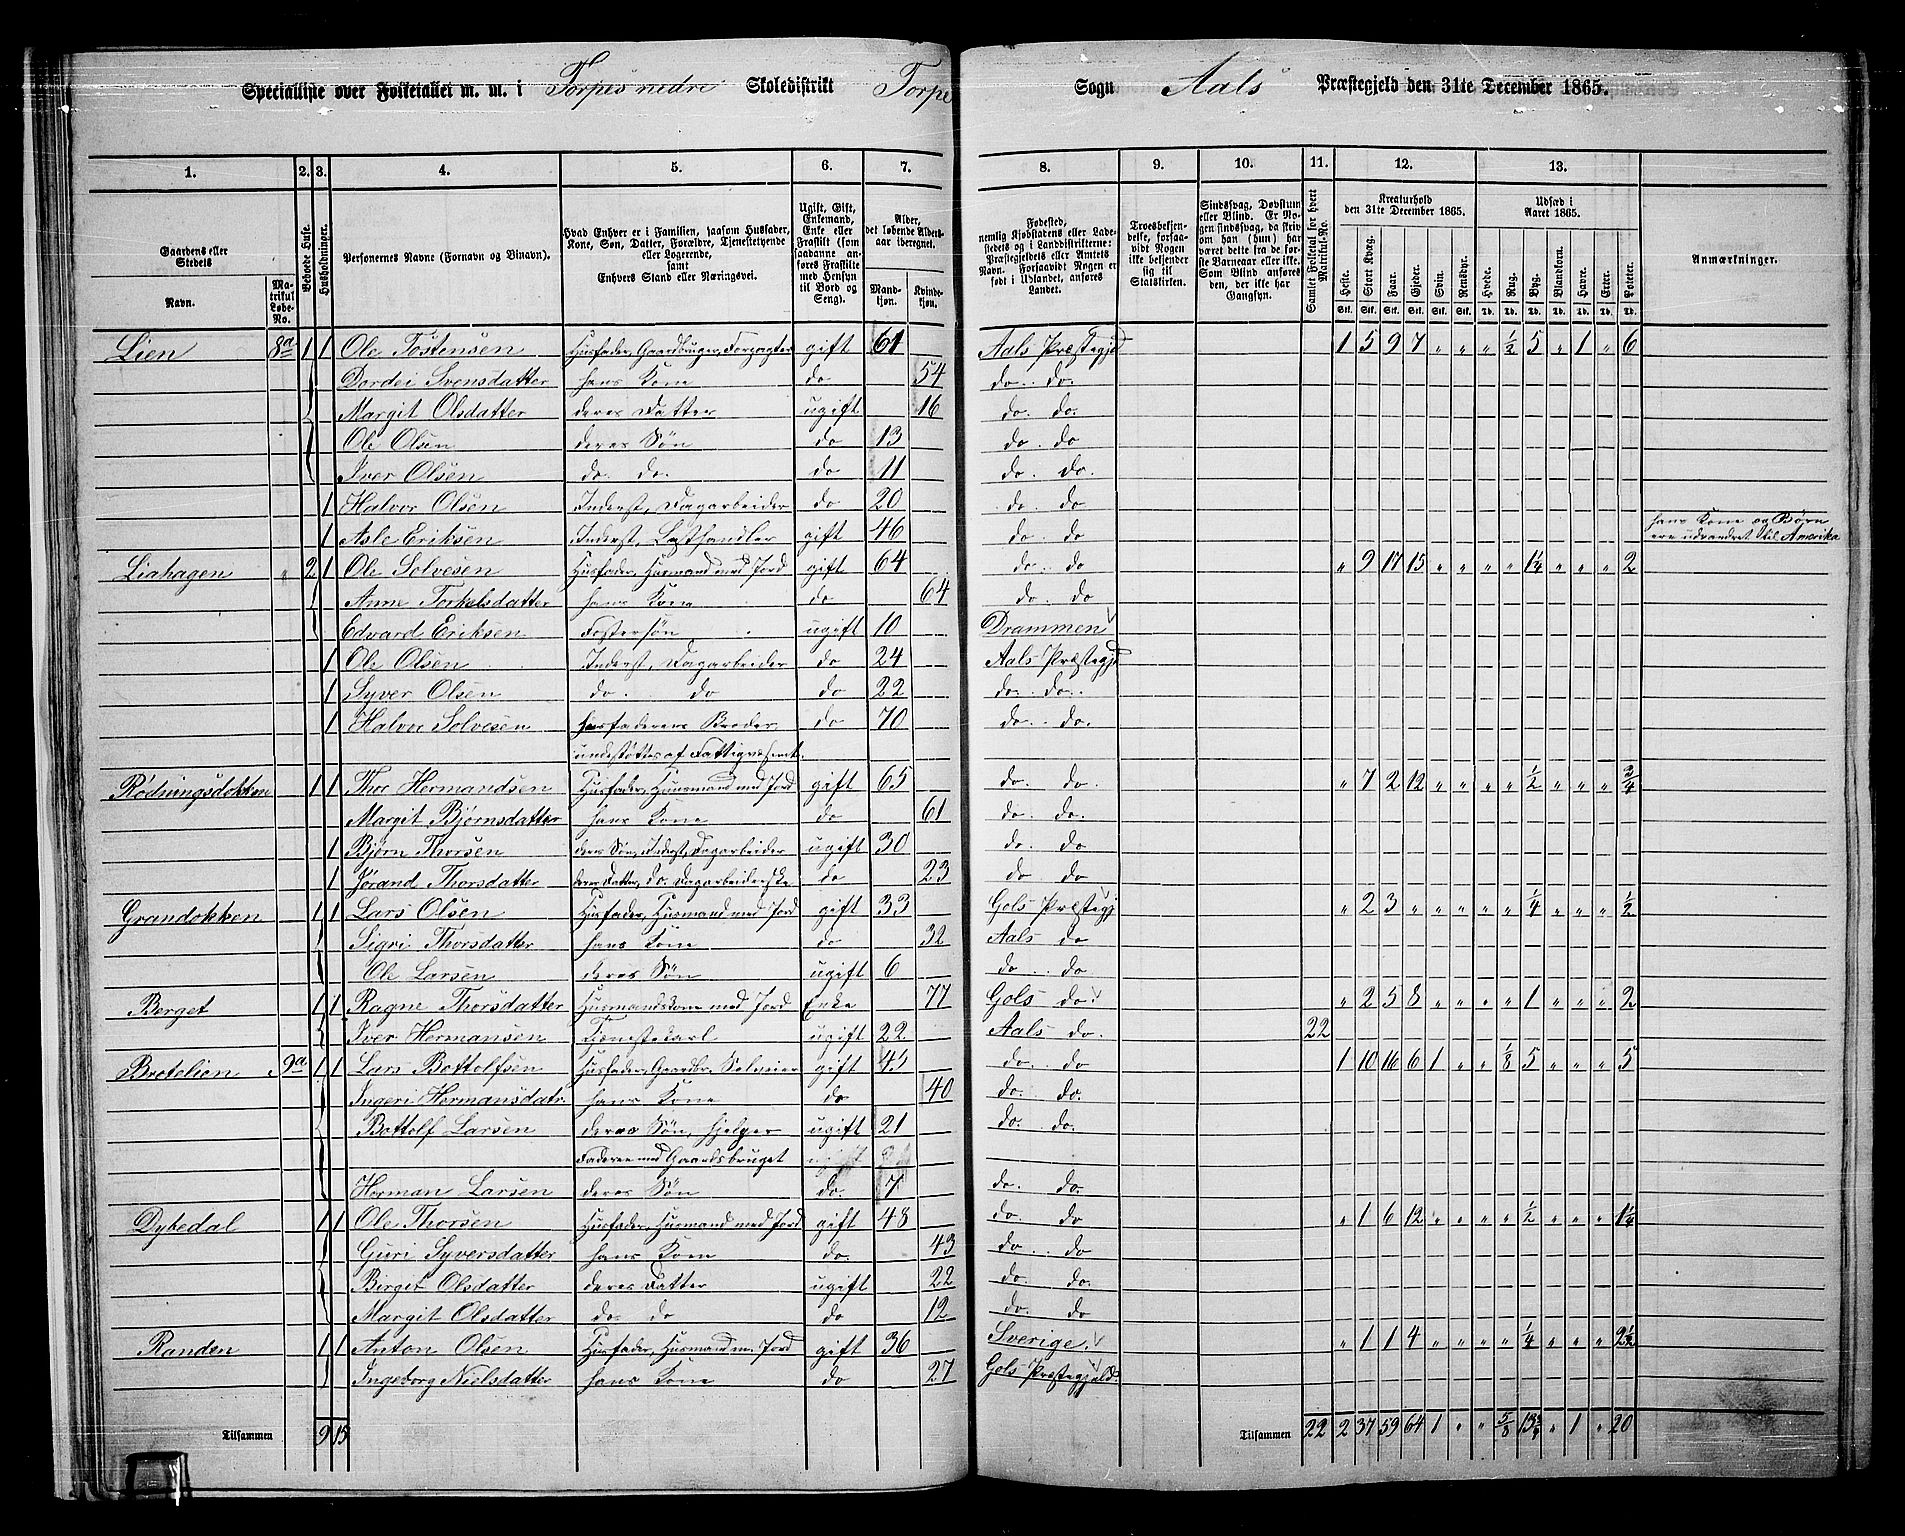 Specialliste over Folketallet m. m. i Torpes nedre Skoledistrikt Torpe Sogn Aals Præstegjeld den 31te December 1865.
1. 2. 3. 4. 5. 6. 7. 8. 9. 10. 11. 12. 13.
Gaardens eller Stedets
Navn.
Matrikul Løbe-No.
Beboede Huse.
Husholdninger.
Personernes Navne (Fornavn og Tilnavn).
Hvad Enhver er i Familien, saasom Husfader, Kone, Søn, Datter, Forældre, Tjenestetyende eller Logerende, samt Enhvers Stand eller Næringsvei.
Ugift, Gift, Enkemand, Enke eller Fraskilt (som saadanne anføres Fraskilte med Hensyn til Bord og Seng).
Alder, det løbende Aldersaar iberegnet.
Mandkjøn. Kvindekjøn.
Fødested, nemlig Kjøbstadens eller Ladestedets og i Landdistrikterne: Præstegjeldets eller Amtets Navn. Forsaavidt Nogen er født i Udlandet, anføres Landet.
Troesbekjendelse, forsaavidt Nogen ikke bekjender sig til Statskirken.
Sindssvag, Døvstum eller Blind. Er Nogen sindssvag, da skriv om han (hun) har været dette fra de første Barneaar eller ikke. Som Blind anføres den, der ikke har Gangsyn.
Samlet Folketal for hvert Matrikul-No.
Kreaturhold den 31te December 1865.
Udsæd i Aaret 1865.
Heste. Stort Kvæg. Faar. Gjeder. Svin. Rensdyr. Hvede. Rug. Byg. Blandkorn. Havre. Erter. Poteter.
Stk. Stk. Stk. Stk. Stk. Stk. Td. Td. Td. Td. Td. Td. Td.
Anmærkninger.
Lien 8a 1 1 Ole Tostensen Husfader, Gaardbruger, Forpagter gift 61 Aals Præstegjd 1 5 9 7 " " " 1/2 5 " 1 " 6
Dordei Svensdatter hans Kone do 54 do. do.
Margit Olsdatter deres Datter ugift 16 do. do.
Ole Olsen deres Søn do 13 do. do
Iver Olsen do. do. do 11 do. do.
1 Halvor Olsen Inderst, Dagarbeider do 20 do. do
1 Asle Eriksen Inderst, Læsthandler gift 46 do. do hans Kone og Børn ere udvandret til Amerika
Liahagen " 2 1 Ole Solvesen Husfader, Husmand med Jord gift 64 do. do " 9 17 15 " " " " 1 1/4 " " " 2
Anne Torkelsdatter hans Kone do 64 do. do
Edvard Eriksen Fostersøn ugift 10 Drammen
1 Ole Olsen Inderst, Dagarbeider do 24 Aals Præstegjd
1 Syver Olsen do. do do 22 do. do.
1 Halvor Solvesen husfaderens Broder, do 70 do. do.
undestøttes af Fattigvæsenet.
Rödningsdokken 1 1 Thor Hermandsen Husfader, Huusmand med Jord gift 65 do. do. " 7 2 12 " " " " 1/2 " " " 3/4
Margit Bjørnsdatter hans Kone do 61 do. do.
1 Bjørn Thorsen deres Søn, Inderst, Dagarbeider ugift 30 do. do
1 Jørand Thorsdatter deres Datter, do. Dagarbeiderske do 23 do. do
Grandokken 1 1 Lars Olsen Husfader, Husmand med Jord gift 33 Gols Præstegj " 2 3 " " " " " 1/4 " " " 1/2
Sigri Thorsdatter hans Kone do 32 Aals do
Ole Larsen deres Søn ugift 6 do. do
Berget 1 1 Ragne Thorsdatter Husmandskone med Jord Enke 77 Gols do. " 2 5 8 " " " " 1 " " " 2
Iver Hermansen Tjenestekarl ugift 22 Aals do. 22
Brotelien 9a 1 1 Lars Bottolfsen Husfader, Gaardbr. Selveier gift 45 do. do 1 10 16 6 1 " " 1/8 5 " " " 5
Ingeri Hermansdatr. hans Kone do 40 do. do.
Bottolf Larsen deres Søn, hjelper ugift 21 do. do.
Faderen med Gaardsbruget
Herman Larsen deres Søn do. 7 do. do.
Dybedal 1 1 Ole Thorsen Husfader, Husmand med Jord gift 48 do. do " 1 6 12 " " " " 1/2 " " " 1 1/4
Guri Syversdatter hans Kone do. 43 do. do
Birget Olsdatter deres Datter ugift 22 do. do.
Margit Olsdatter do. do do 12 do. do
Randen 1 1 Anton Olsen Husfader, Husmand m. Jord gift 36 Sverige. " 1 1 4 " " " " 1/4 " " " 2 1/2
Ingeborg Nielsdatter hans Kone do 27 Gols Præstegjeld.
Tilsammen 9 15 Tilsammen 22 2 37 59 64 1 " " 5/8 13 3/4 " 1 " 20